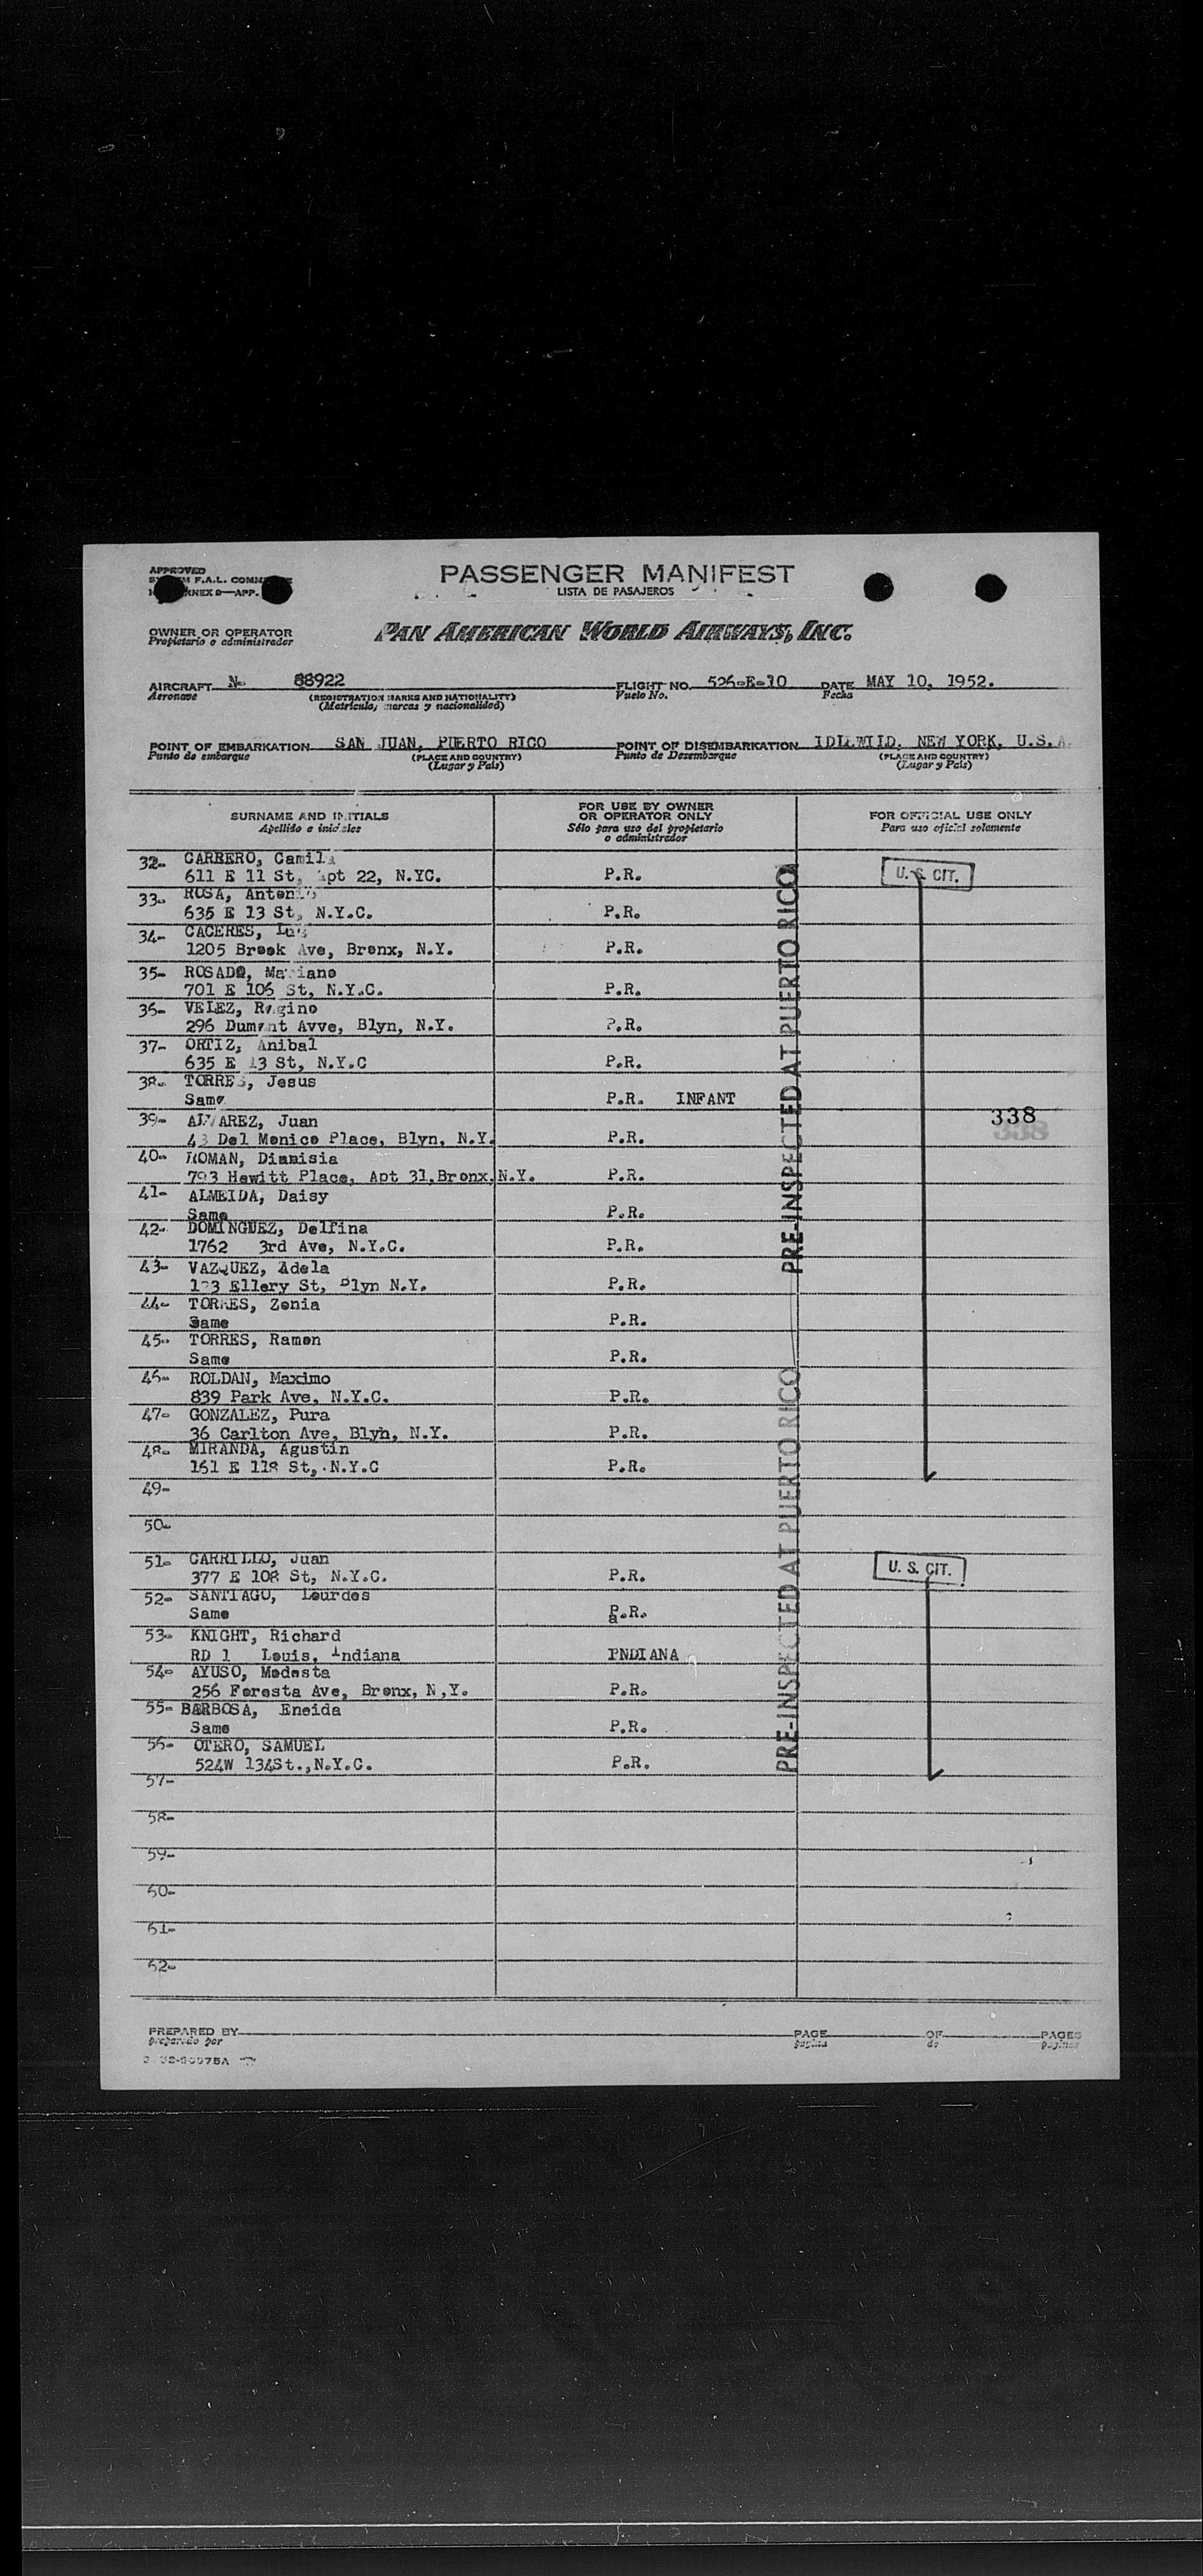 APPROVED
F.A.L.
PASSENGER MANIFEST
LISTA DE PASAJEROS
OWNER OR OPERATOR
Propietario o administrador
PAN AMERICAN WORLD AIRWAYS, INC.
AIRCRAFT N- 88922 FLIGHT NO. 526-E-10 DATE MAY 10, 1952.
Aeronave (REGISTRATION MARKS AND NATIONALITY) Vuelo No. Fecha
(Matricula, marcas y nacionalidad)
POINT OF EMBARKATION SAN JUAN, PUERTO RICO POINT OF DISEMBARKATION IDLEWILD, NEW YORK, U.S.A.
Punto de embarque (PLACE AND COUNTRY) Punto de Desembarque (PLACE AND COUNTRY)
(Lugar y País) (Lugar y País)
SURNAME AND INITIALS FOR USE BY OWNER OR OPERATOR ONLY FOR OFFICIAL USE ONLY
Apellido e iniciales Sólo para uso del propietario o administrador Para uso oficial solamente
32- CARRERO, Camila
611 E 11 St, Apt 22, N.YC. P.R. U. S. CIT.
33- ROSA, Antonio
635 E 13 St, N.Y.C. P.R.
34- CACERES, Luis
1205 Brook Ave, Bronx, N.Y. P.R.
35- ROSADO, Mariano
701 E 106 St, N.Y.C. P.R.
36- VELEZ, Regino
296 Dumont Avve, Blyn, N.Y. P.R.
37- ORTIZ, Anibal
635 E 13 St, N.Y.C P.R.
38- TORRES, Jesus
Same P.R. INFANT
39- ALVAREZ, Juan 338
43 Del Monico Place, Blyn, N.Y. P.R.
40- ROMAN, Dianisia
793 Hewitt Place, Apt 31, Bronx, N.Y. P.R.
41- ALMEIDA, Daisy
Same P.R.
42- DOMINGUEZ, Delfina
1762 3rd Ave, N.Y.C. P.R.
43- VAZQUEZ, Adela
Ellery St, Blyn N.Y. P.R.
44- TORRES, Zenia
Same P.R.
45- TORRES, Ramon
Same P.R.
46- ROLDAN, Maximo
839 Park Ave, N.Y.C. P.R.
47- GONZALEZ, Pura
36 Carlton Ave, Blyh, N.Y. P.R.
48- MIRANDA, Agustin
161 E 118 St, N.Y.C P.R.
49-
50-
51- CARRILLO, Juan
377 E 108 St, N.Y.C. P.R. U. S. CIT.
52- SANTIAGO, Lourdes
Same P.R.
53- KNIGHT, Richard
RD 1 Louis, Indiana PNDIANA
54- AYUSO, Modesta
256 Foresta Ave, Bronx, N,Y. P.R.
55- BARBOSA, Eneida
Same P.R.
56- OTERO, SAMUEL
524W 134St.,N.Y.C. P.R.
57-
58-
59-
60-
61-
62-
PRE-INSPECTED AT PUERTO RICO
PRE-INSPECTED AT PUERTO RICO
PREPARED BY PAGE OF PAGES
preparado por pagina de paginas